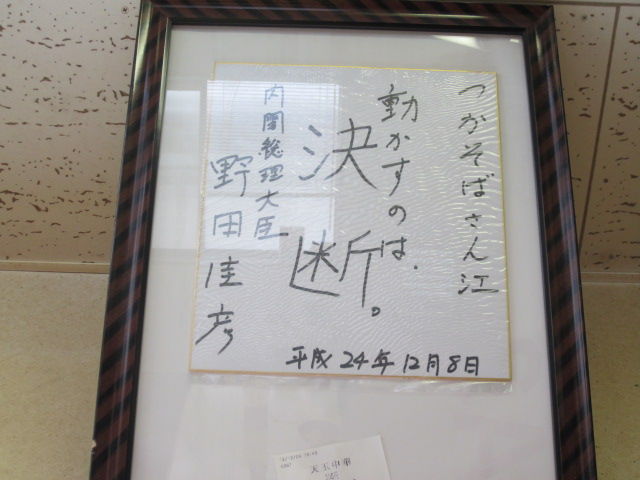 つかそばさん江
動かすのは、
決断。
内閣総理大臣
野田佳彦
平成24年12月8日
天玉中華